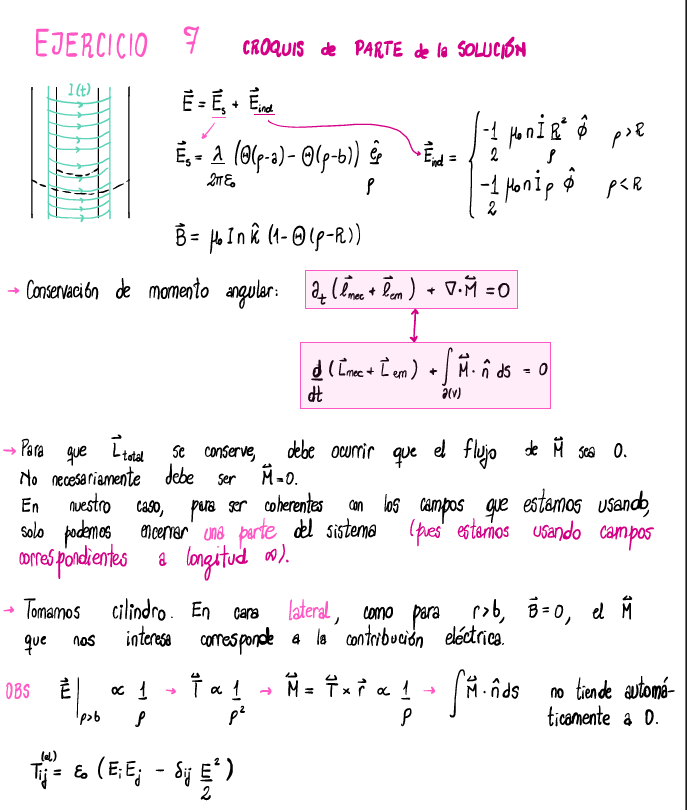 EJERCICIO 7 CROQUIS de PARTE de la SOLUCIÓN
I(t)
E⃗ = E⃗ₛ + E⃗ind
E⃗ₛ = λ/2πε₀ (Θ(ρ-a) - Θ(ρ-b)) êρ/ρ
E⃗ind = { -1/2 μ₀ n İ R²/ρ φ̂ ρ>R
-1/2 μ₀ n İ ρ φ̂ ρ<R
B⃗ = μ₀ I n k̂ (1-Θ(ρ-R))
→ Conservación de momento angular: ∂t (ℓ⃗mec + ℓ⃗em) + ∇·M⃡ = 0
d/dt (L⃗mec + L⃗em) + ∫∂(V) M⃡·n̂ ds = 0
→ Para que L⃗total se conserve, debe ocurrir que el flujo de M⃡ sea 0.
No necesariamente debe ser M⃡=0.
En nuestro caso, para ser coherentes con los campos que estamos usando,
solo podemos encerrar una parte del sistema (pues estamos usando campos
correspondientes a longitud ∞).
→ Tomamos cilindro. En cara lateral, como para r>b, B⃗=0, el M⃡
que nos interesa corresponde a la contribución eléctrica.
OBS E⃗|ρ>b ∝ 1/ρ → T⃡ ∝ 1/ρ² → M⃡ = T⃡ × r⃗ ∝ 1/ρ → ∫M⃡·n̂ ds no tiende automá-
ticamente a 0.
Tij(el) = ε₀ (EiEj - δij E²/2)